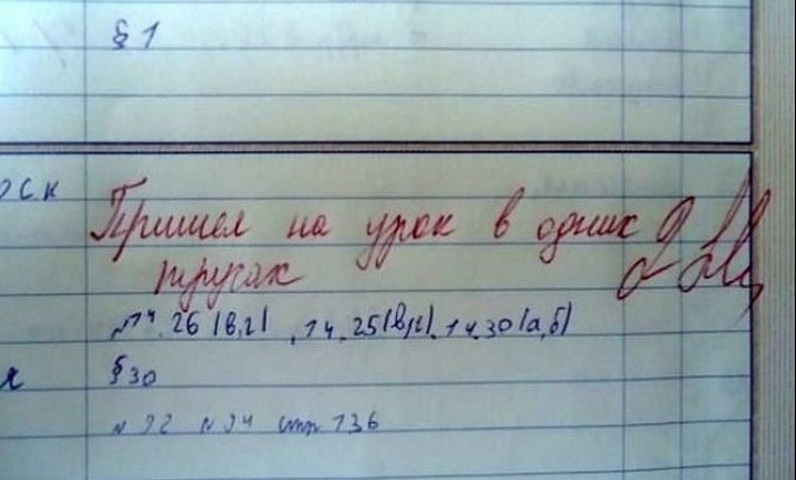 § 1
рск
Пришел на урок в одних 2
трусах
№14.26(в,г), 14.25(в,г), 14.30(а,б)
§ 30
№ 92 № 94 стр 136